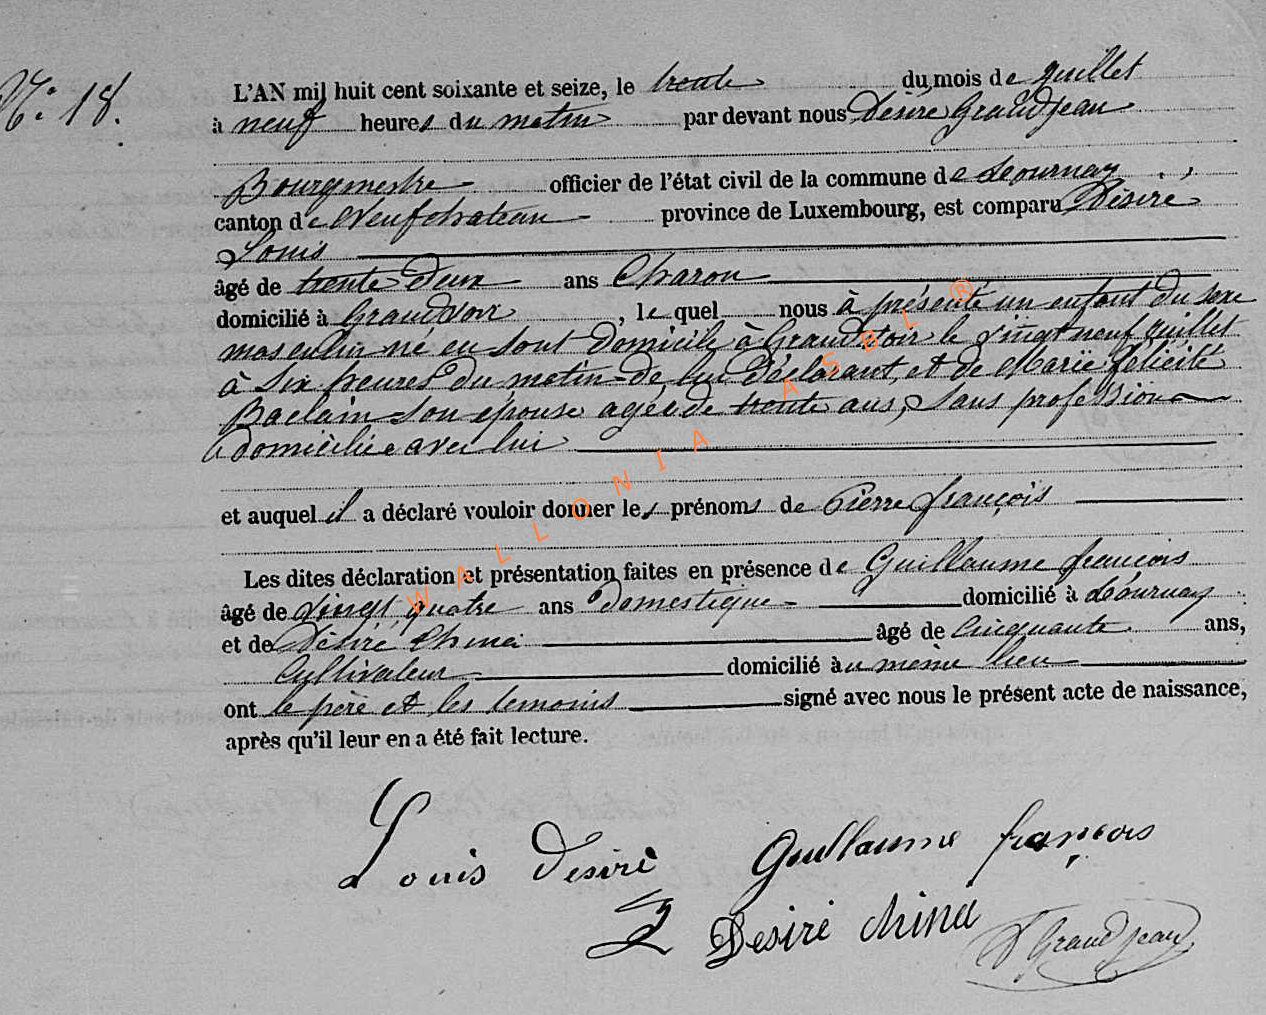 N° 18.
L'AN mil huit cent soixante et seize, le trente du mois de juillet
à neuf heures du matin par devant nous Désiré Grandjean
Bourgmestre officier de l'état civil de la commune de Tournay,
canton de Neufchateau province de Luxembourg, est comparu Désiré
Louis
âgé de trente deux ans Charon
domicilié à Grandvoir, le quel nous à présenté un enfant du sexe
masculin né en sont domicile à Grandvoir le vingt neuf juillet
à six heures du matin de lui déclarant, et de Marie Félicité
Baclain son épouse agée de trente ans, sans profession
domiciliée avec lui
et auquel il a déclaré vouloir donner les prénoms de Pierre françois
Les dites déclaration et présentation faites en présence de Guillaume francois
âgé de vingt quatre ans domestique domicilié à Tournay
et de Désiré China âgé de cinquante ans,
Cultivateur domicilié au même lieu
ont le père et les temoins signé avec nous le présent acte de naissance,
après qu'il leur en a été fait lecture.
Louis Desiré Guillaume françois
Desiré china D Grandjean
WALLONIA ASBL ®